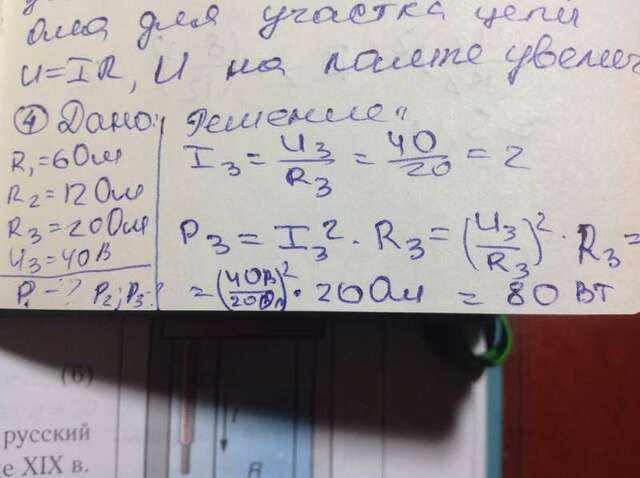 ома для участка цепи
U=IR, U на лампе увелич
④ Дано: Решение:
R₁=6Ом
R₂=12Ом
R₃=20Ом
U₃=40В
P₁-? P₂; P₃-?
I₃ = U₃/R₃ = 40/20 = 2
P₃ = I₃² · R₃ = (U₃/R₃)² · R₃ =
= (40В/20Ом)² · 20Ом = 80 Вт
(б)
русский
е XIX в.
I
R